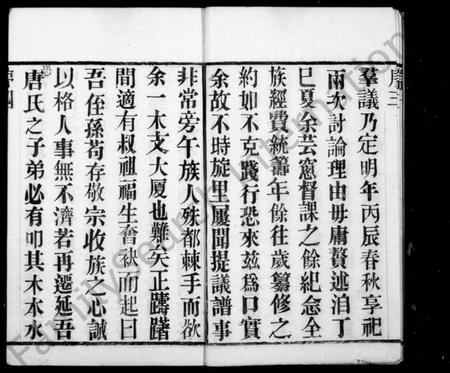 羣議乃定明年丙辰春秋享祀
兩次討論理由毋庸贅述洎丁
巳夏余芸窻督課之餘紀念全
族經費統籌年餘往歲纂修之
約如不克踐行恐來茲爲口實
余故不時旋里屢聞提議譜事
非常旁午族人殊都棘手而欲
余一木支大厦也難矣正躊躇
間適有叔祖福生奮袂而起曰
吾侄孫苟存敬宗收族之心誠
以格人事無不濟若再遷延吾
唐氏之子弟必有叩其木本水
FamilySearch International